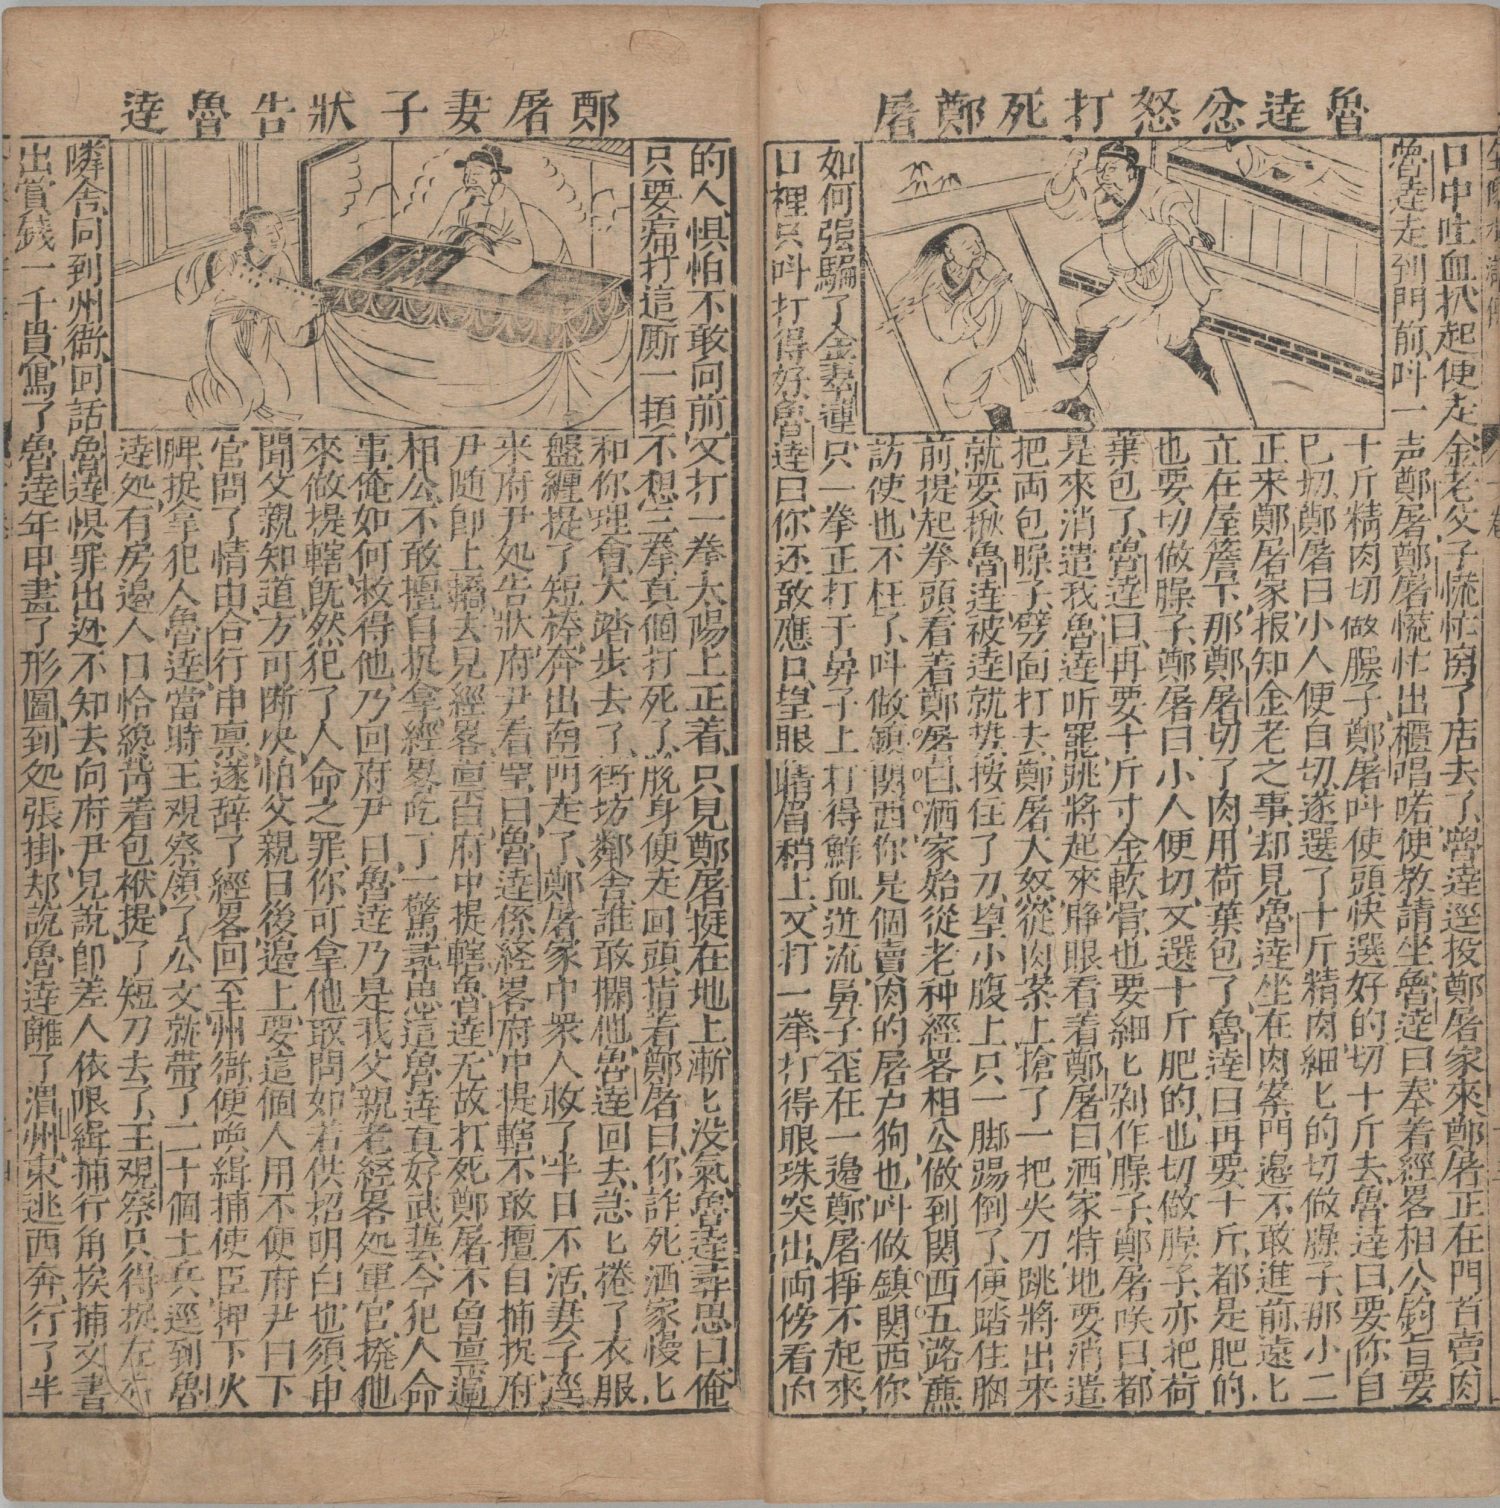 魯逹忿怒打死鄭屠
口中吐血扒起便走金老父子慌忙离了店去了魯逹逕投鄭屠家來鄭屠正在門首賣肉
魯逹走到門前叫一声鄭屠鄭屠慌忙出櫃唱喏便教請坐魯逹曰奉着經畧相公鈞旨要
十斤精肉切做臊子鄭屠叫使頭快選好的切十斤去魯逹曰要你自
已切鄭屠曰小人便自切遂選了十斤精肉細匕的切做臊子那小二
正來鄭屠家报知金老之事却見魯逹坐在肉案門邉不敢進前遠匕
立在屋簷下那鄭屠切了肉用荷葉包了魯逹曰再要十斤都是肥的
也要切做臊子鄭屠曰小人便切又選十斤肥的也切做臊子亦把荷
葉包了魯逹曰再要十斤寸金軟骨也要細匕剁作臊子鄭屠咲曰都
是來消遣我魯逹听罷跳將起來睁眼看着鄭屠曰洒家特地要消遣
把両包臊子劈面打去鄭屠大怒從肉案上搶了一把尖刀跳將出來
就要揪魯逹被逹就势按住了刀望小腹上只一脚踢倒了便踏住胸
前提起拳頭看着鄭屠曰洒家始從老种經畧相公做到関西五路廉
訪使也不枉了叫做鎮関西你是個賣肉的屠户狗也叫做鎮関西你
如何强騙了金翠蓮只一拳正打于鼻子上打得鮮血迸流鼻子歪在一邉鄭屠掙不起來
口裡只叫打得好魯逹曰你还敢應口望眼睛眉稍上又打一拳打得眼珠突出両傍看的
鄭屠妻子狀告魯逹
的人惧怕不敢向前又打一拳太陽上正着只見鄭屠挺在地上漸匕没氣魯逹尋思曰俺
只要痛打這厮一頓不想三拳真個打死了脱身便走回頭指着鄭屠曰你詐死洒家慢匕
和你理會大踏步去了街坊鄰舍誰敢攔他魯逹回去急匕捲了衣服
盤纏提了短棒奔出南門走了鄭屠家中衆人救了半日不活妻子逕
來府尹処告狀府尹看罢曰魯逹係経畧府中提轄不敢擅自捕捉府
尹随即上轎去見經畧禀曰府中提轄魯逹无故打死鄭屠不曾禀過
相公不敢擅自捉拿經畧吃了一驚尋思這魯逹真好武藝今犯人命
事俺如何救得他乃回府尹曰魯逹乃是我父親老經畧処軍官撥他
來做提轄既然犯了人命之罪你可拿他取問如若供招明白也須申
聞父親知道方可断决怕父親日後邉上要這個人用不便府尹曰下
官問了情由合行申禀遂辞了經畧回至州衙便喚緝捕使臣押下火
牌捉拿犯人魯逹當時王观察領了公文就带了二十個士兵逕到魯
逹処有房邉人口恰纔背着包袱提了短刀去了王观察只得捉左右
隣舍向到州衙回話魯逹惧罪出迯不知去向府尹見說即差人依限緝捕行角挨捕文書
出賞錢一千貫寫了魯逹年甲畫了形圖到処張掛却說魯逹離了渭州東逃西奔行了半